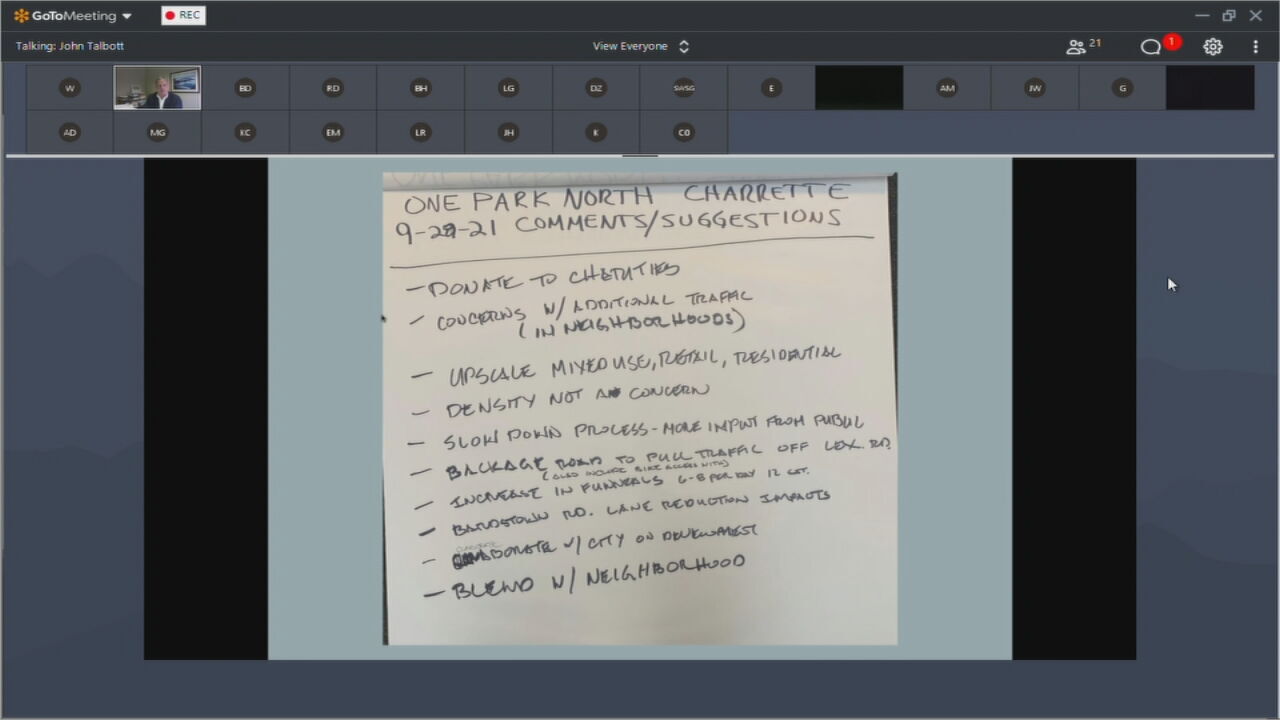 GoToMeeting
REC
Talking: John Talbott
View Everyone
21
1
W
BD
RD
BH
LG
DZ
SWSG
E
AM
JW
G
AD
MG
KC
EM
LR
JH
K
CO
ONE PARK NORTH CHARRETTE
9-29-21 COMMENTS/SUGGESTIONS
- DONATE TO
- CONCERNS W/ ADDITIONAL TRAFFIC
(IN NEIGHBORHOODS)
- UPSCALE MIXED USE, RETAIL, RESIDENTIAL
- DENSITY NOT A CONCERN
- SLOW DOWN PROCESS - MORE INPUT FROM PUBLIC
- BACKAGE ROAD TO PULL TRAFFIC OFF LEX. RD.
(ALSO INCLUDE BIKE ACCESS WITH)
- INCREASE IN FUNERALS 6-8 PER DAY
- BARDSTOWN RD. LANE REDUCTION IMPACTS
- W/ CITY ON DEVELOPMENT
- BLEND W/ NEIGHBORHOOD